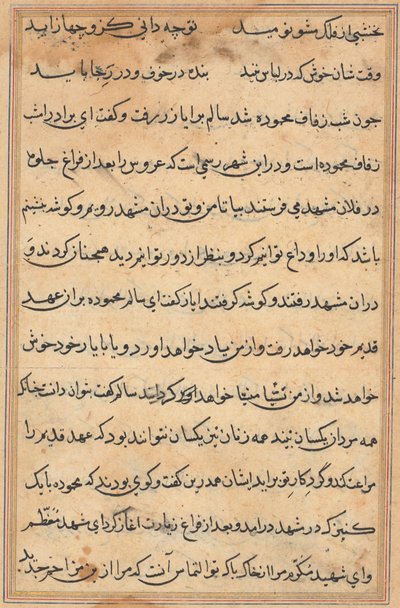 نخشبی از فلک مشو نومید تو چه دانی کزو چها زاید
وقت شان خوش که در لباس تنند بنده در خوف و در رجا باید
چون شب زفاف محموده شد سالم برایاز رفت و گفت ای برادر امشب
زفاف محموده است و درین شهر رسمی است که عروس را بعد از فراغ جلوه
در فلان مشهد می فرستند بیا تا من و تو در ان مشهد رویم و گوشه بنشینم
باشد که او را وداع توانیم کرد و بنظر از دور توانیم دید همچنان کردند و
در ان مشهد رفتند و گوشه گرفتند ایاز گفت ای سالم محموده بر از عهد
قدیم خود خواهد رفت و از من یاد خواهد اورد و با یار خود خوش
خواهد شد و از من خواهد سالم گفت نتوان دانست چنانکه
همه مردان یکسان نیند همه زنان نیز یکسان نتوانند بود که عهد قدیم را
مراعت کند و گرد کار تو براید ایشان همدرین گفت و گوی بودند که محموده با یک
کنیزک در مشهد درامد و بعد از فراغ زیارت اغاز کرد ای شهید معظم
و ای شهید مکرم مرا از خاک پاک تو التماس انست که مرا از من